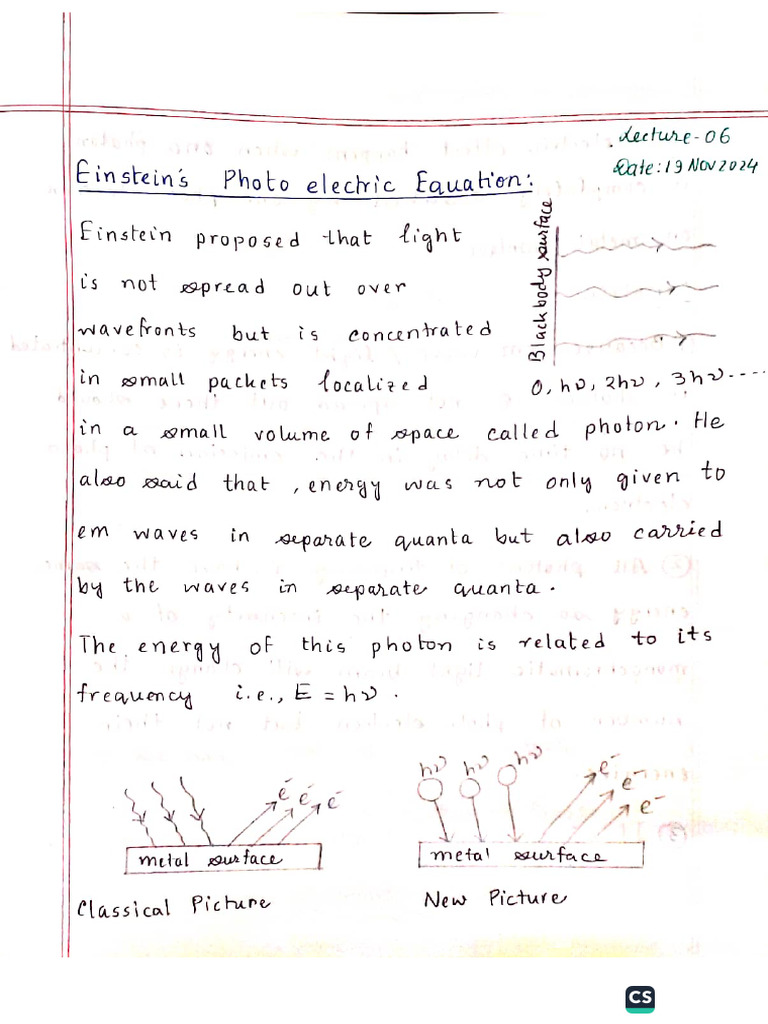 Lecture-06
Date: 19 Nov 2024
Einstein's Photo electric Equation:
Einstein proposed that light
is not spread out over
wavefronts but is concentrated
in small packets localized
Blackbody surface
0, hν, 2hν, 3hν----
in a small volume of space called photon. He
also said that, energy was not only given to
em waves in separate quanta but also carried
by the waves in separate quanta.
The energy of this photon is related to its
frequency i.e., E = hν.
e⁻ e⁻ e⁻
metal surface
Classical Picture
hν hν hν
e⁻ e⁻ e⁻
metal surface
New Picture
CS